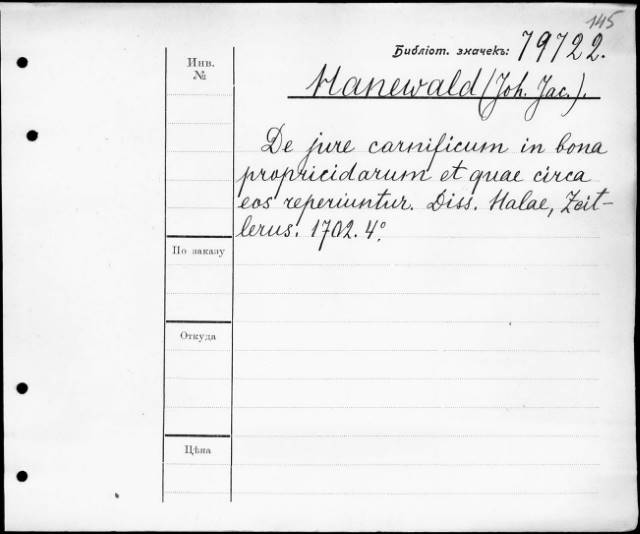 145
Библіот. значекъ: 79722.
Инв.
№
Hanewald (Joh. Jac.).
De jure carnificum in bona
propricidarum et quae circa
eos reperiuntur. Diss. Halae, Zeit-
lerus. 1702. 4°.
По заказу
Откуда
Цѣна